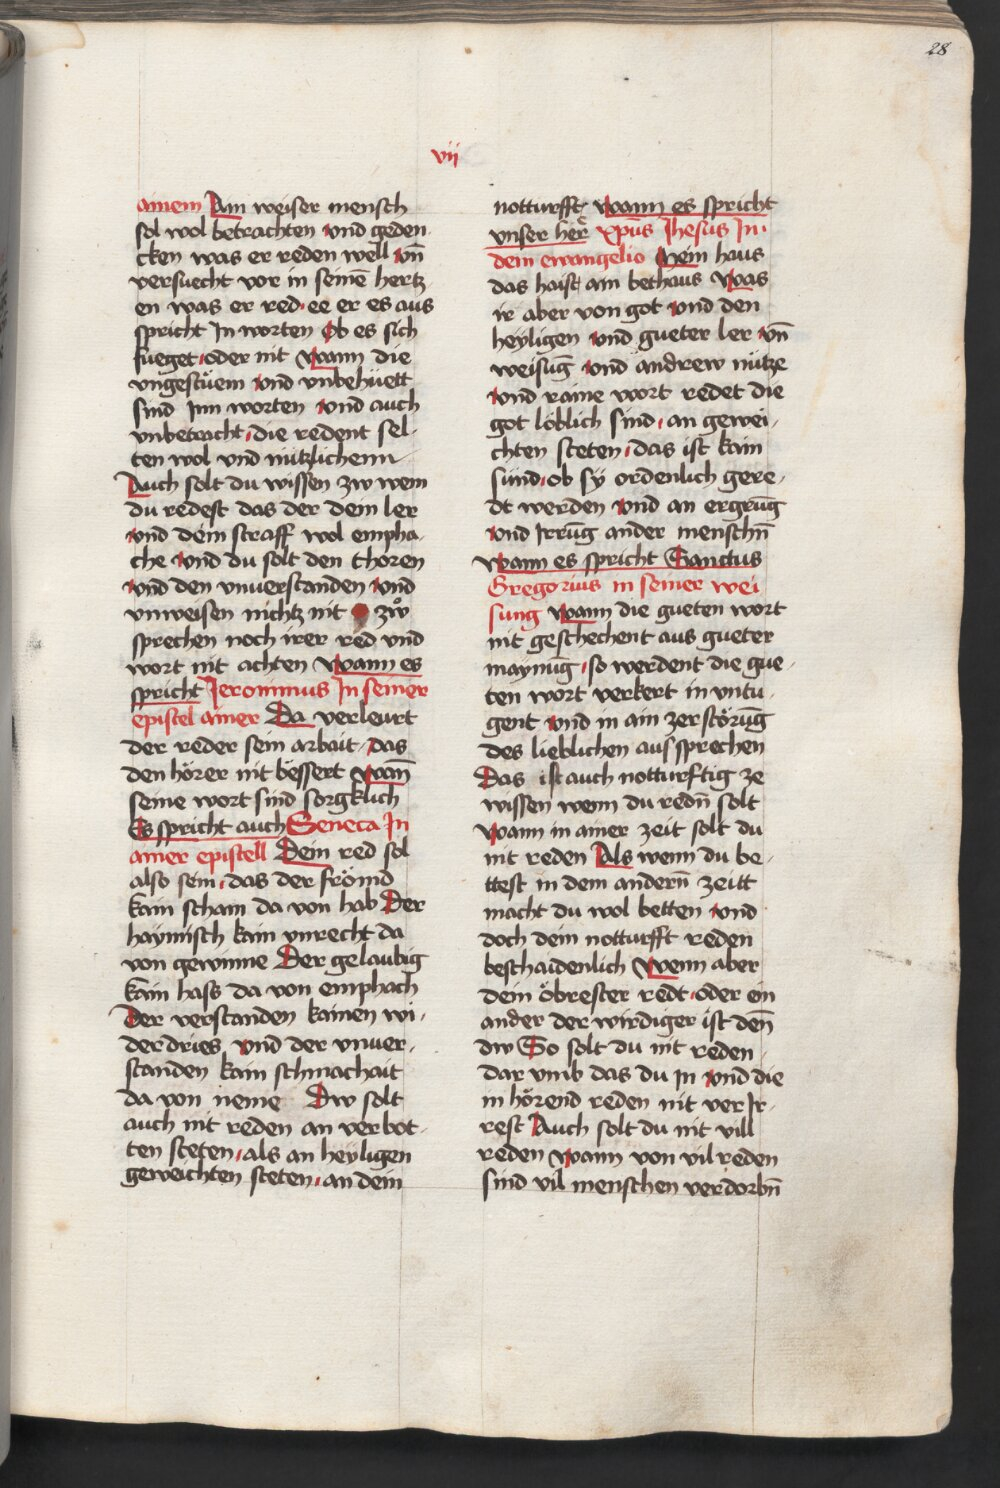 28
vij
ainem Ain weiser mensch
sol wol betrachten vnd geden
cken was er reden well vn̄
versuecht vor in seinē hertz
en was er red · ee er es aus
spricht In worten Ob es sich
fueget · oder nit Wann die
vngestüem vnd vnbehüett
sind Inn worten vnd auch
vnbetracht · die redent sel-
ten wol vnd nützlichenn
Auch solt du wissen zw wem
du redest das der dein ler
vnd dein straff wol empha
che vnd du solt den thoren
vnd den vnuerstanden vnd
vnweisen nichtz nit zů
sprechen noch irer red vnd
wort nit achten Wann es
spricht Jeronimus In seiner
epistel ainer Da verleurt
der reder sein arbait · das
den hörer nit bessert Wan̄
seine wort sind sorgklich
Es spricht auch Seneca In
ainer epistell Dein red sol
also sein · das der frömd
kain scham da von hab Der
haymisch kain vnrecht da
von gewinne Der gelaubig
kain hass da von emphach
Der verstanden kainen wi-
derdries vnd der vnuer-
standen kain schmachait
da von neme Dw solt
auch nit reden an verbot-
ten steten · als an heyligen
geweichten steten · an dein
notturfft Wann es spricht
vnser her̄ xp̄us Jhesus In
dem ewangelio Mein haus
das haist ain bethaus Was
ir aber von got vnd den
heyligen vnd gueter ler vn̄
weisūg vnd andrew nütze
vnd raine wort redet die
got löblich sind · an gewei-
chten steten · das ist kain
sünd · ob sy ordenlich gere-
dt werden vnd an ergrūg
vnd Irrūg ander menschn̄
Wann es spricht Sanctus
Gregorius in seiner wei
sung Wann die gueten wort
nit geschechent aus gueter
maynūg · so werdent die gue-
ten wort verkert in vntu-
gent vnd in ain zerstörūg
des lieblichen aussprechen
Das ist auch notturftig ze
wissen wenn du redn̄ solt
Wann in ainer zeit solt du
nit reden Als wenn du be-
ttest in dem andern̄ zeitt
macht du wol betten vnd
doch dein notturfft reden
beschaidenlich Wenn aber
dein öbrester redt · oder ein
ander der wirdiger ist den̄
dw So solt du nit reden
dar vmb das du In vnd die
in hörend reden nit ver Ir-
rest Auch solt du nit vill
reden Wann von vil reden
sind vil menschen verdorbn̄